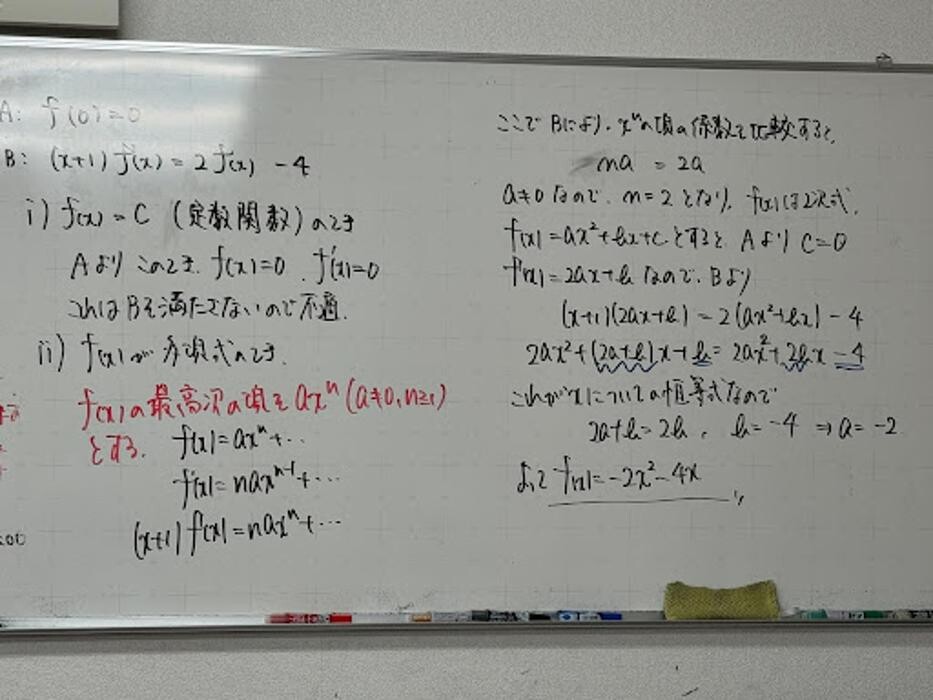 A: f(0)=0
B: (x+1)f'(x)=2f(x)-4
i) f(x)=C (定数関数)のとき
Aより このとき、f(x)=0、f'(x)=0
これはBを満たさないので不適.
ii) f(x)が多項式のとき.
f(x)の最高次の項をax^n(a≠0,n≥1)
とする.
f(x)=ax^n+…
f'(x)=nax^{n-1}+…
(x+1)f'(x)=nax^n+…
ここでBにより、x^nの項の係数を比較すると、
na=2a
a≠0なので、n=2となり、f(x)は2次式.
f(x)=ax²+bx+c とすると Aより C=0
f'(x)=2ax+b なので、Bより
(x+1)(2ax+b)=2(ax²+bx)-4
2ax²+(2a+b)x+b=2ax²+2bx-4
これがxについての恒等式なので
2a+b=2b, b=-4 →a=-2
よって f(x)=-2x²-4x